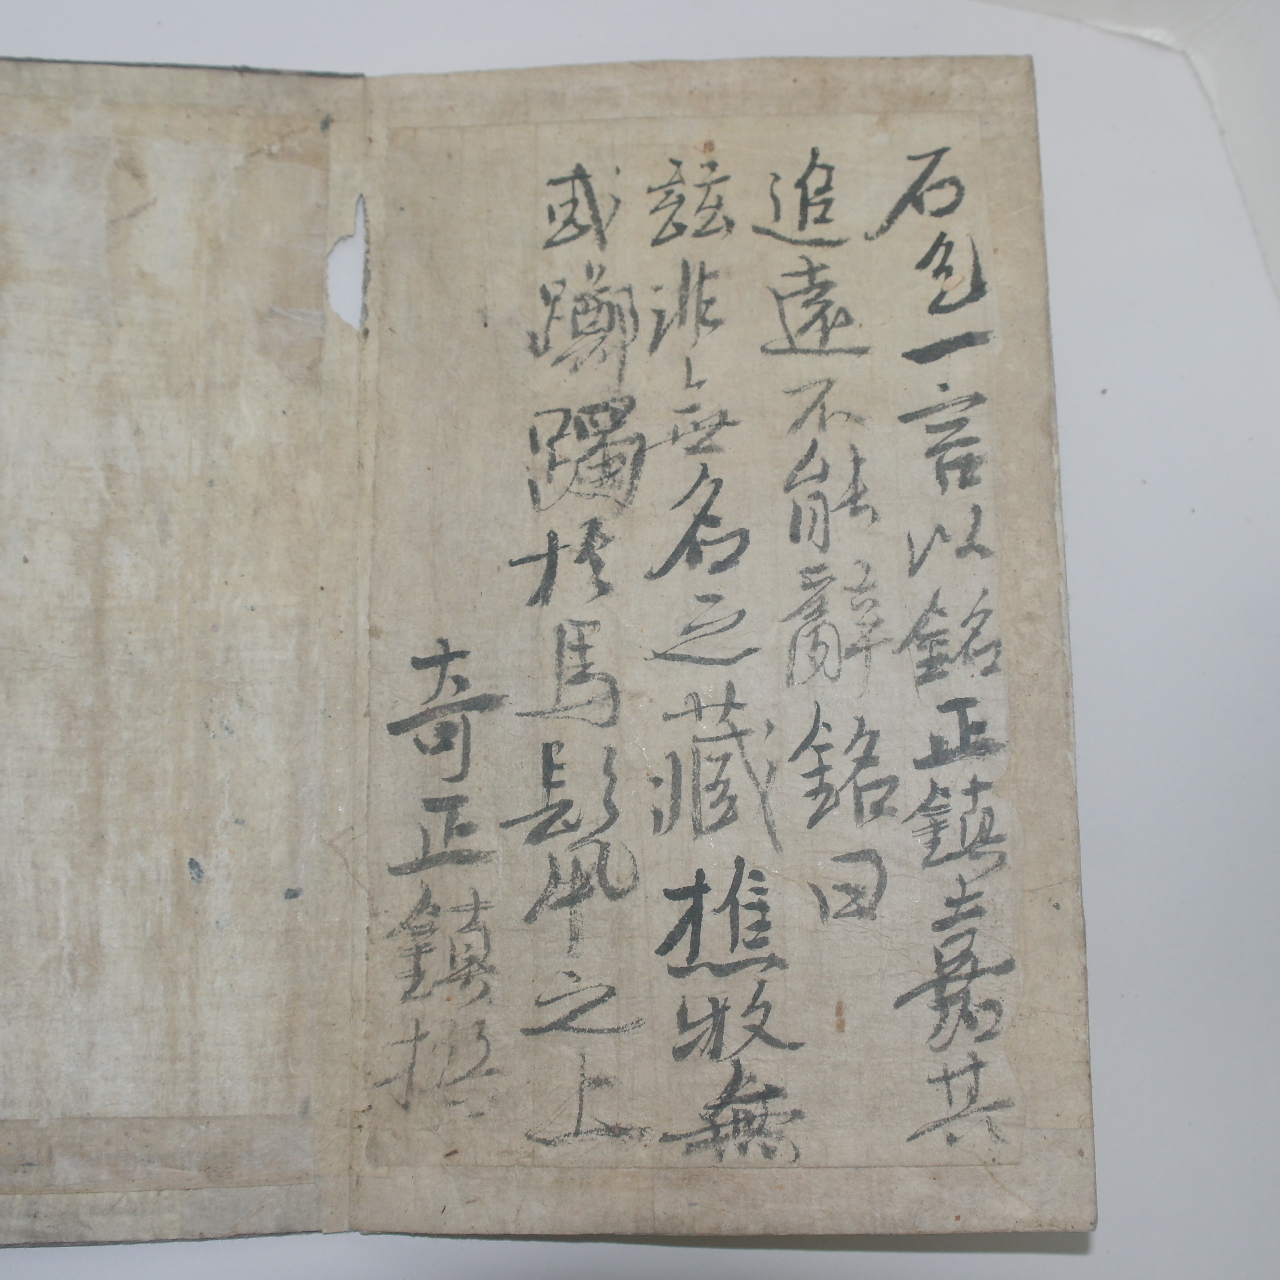 石乞一言以銘正鎭嘉其
追遠不能辭銘曰
玆非無名之藏樵牧無
或躑躅於馬鬛之上
奇正鎭撰